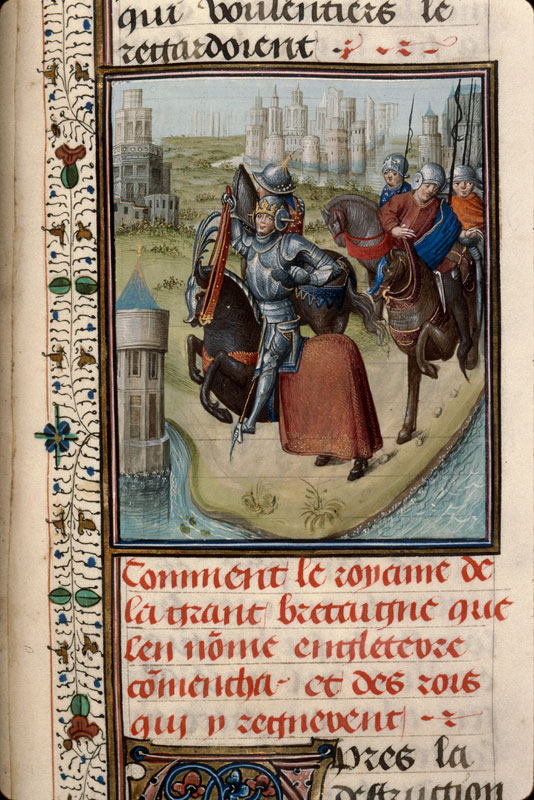 qui voulentiers le
regardoient
Comment le royame de
la grant bretaigne que
len nõme engleterre
cõmencha et des rois
qui y regnerent
pres la
destruction